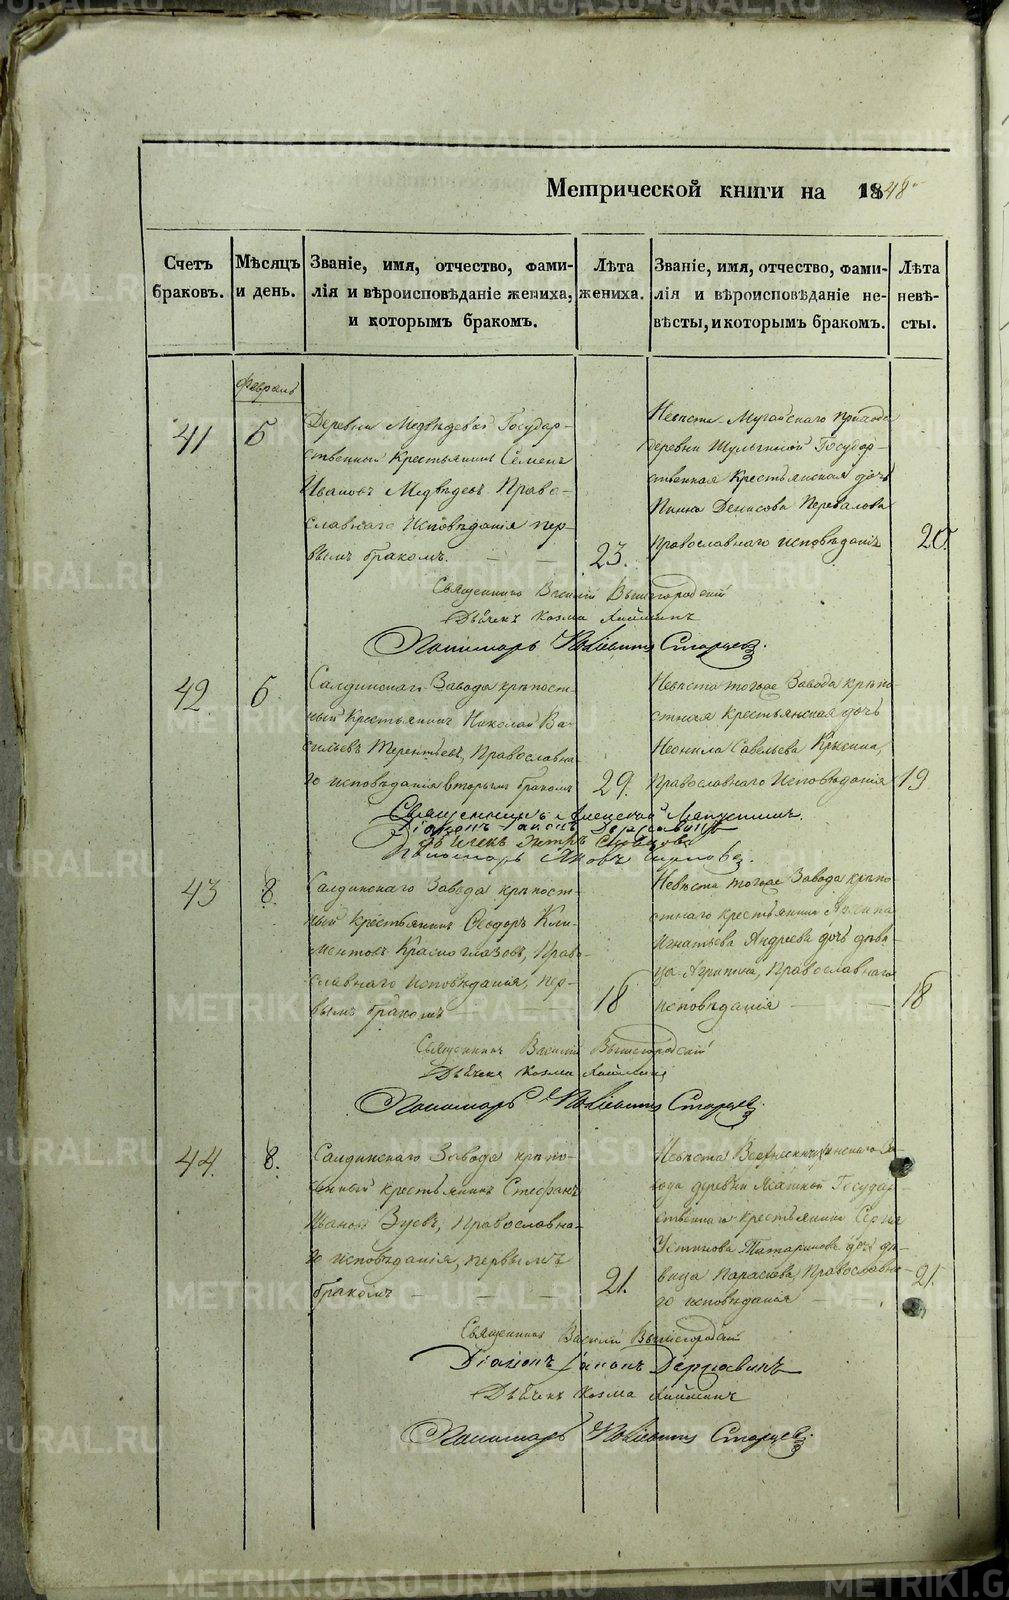 Метрической книги на 1848
Счетъ браковъ.
Мѣсяцъ и день.
Званіе, имя, отчество, фами-
лія и вѣроисповѣданіе жениха,
и которымъ бракомъ.
Лѣта жениха.
Званіе, имя, отчество, фами-
лія и вѣроисповѣданіе не-
вѣсты, и которымъ бракомъ.
Лѣта невѣ-
сты.
Февраль
41
6
Деревни Медвѣдевой Государ-
ственный Крестьянинъ Семенъ
Ивановъ Медвѣдевъ Право-
славнаго Исповѣданія пер-
вымъ бракомъ.
23.
Невѣста Мугайскаго Прихода
деревни Шулгиной Государ-
ственная Крестьянская дочь
Денисова Перевалова
Православнаго исповѣданія
20.
Священникъ Василій Вышегородскій
Дьячекъ Козма
Пономарь Старцев
42
6
Салдинскаго Завода крѣпост-
ный Крестьянинъ Николай Ва-
сильевъ Терентьевъ, Православна-
го исповѣданія вторымъ бракомъ
29.
Невѣста тогоже Завода крѣпо-
стная Крестьянская дочь
Неонила Савельева
Православнаго Исповѣданія
19
Священникъ
Діаконъ Гапонъ Державинъ
Дьячекъ Петръ
Пономарь Яковъ
43
8.
Салдинскаго Завода крѣпост-
ный крестьянинъ Ѳеодоръ Кли-
ментовъ Красноглазовъ, Право-
славнаго исповѣданія, пер-
вымъ бракомъ
18
Невѣста тогоже Завода крѣпо-
стнаго крестьянина
Игнатьева Андреева дочь дѣви-
ца Агрипина, Православнаго
исповѣданія
18
Священникъ Василій Вышегородскій
Дьячекъ Козма
Пономарь Старцев
44.
8.
Салдинскаго Завода крѣпо-
стный крестьянинъ Стефанъ
Ивановъ Зуевъ, Православна-
го исповѣданія, первымъ
бракомъ
21.
Невѣста За-
вода деревни Государ
ственнаго крестьянина Сергія
Устинова Татаринова дочь дѣ-
вица Параскева, Православна-
го исповѣданія
21.
Священникъ Василій Вышегородскій
Діаконъ Гапонъ Державинъ
Дьячекъ Козма
Пономарь Старцев
METRIKI.GASO-URAL.RU